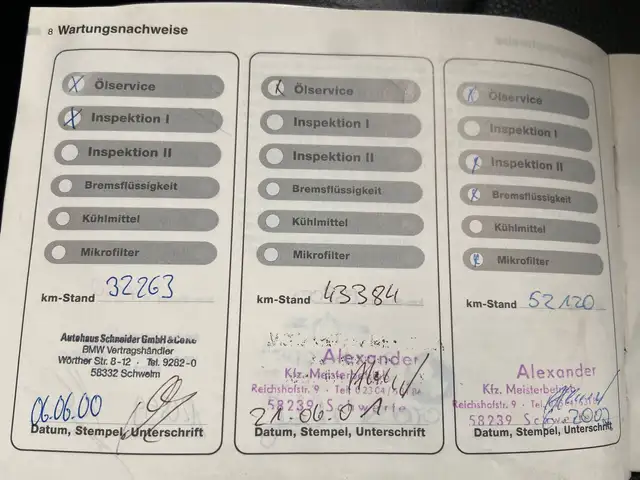 8 Wartungsnachweise
X Ölservice
X Inspektion I
Inspektion II
Bremsflüssigkeit
Kühlmittel
Mikrofilter
km-Stand 32263
Autohaus Schneider GmbH & Co KG
BMW Vertragshändler
Wörther Str. 8-12 · Tel. 9282-0
58332 Schwelm
06.06.00
Datum, Stempel, Unterschrift
Ölservice
Inspektion I
Inspektion II
Bremsflüssigkeit
Kühlmittel
Mikrofilter
km-Stand 43384
Alexander
Kfz. Meisterbetrieb
Reichshofstr. 9 · Tel. 02304/
58239 Schwerte
21.06.01
Datum, Stempel, Unterschrift
X Ölservice
Inspektion I
X Inspektion II
X Bremsflüssigkeit
Kühlmittel
X Mikrofilter
km-Stand 52120
Alexander
Kfz. Meisterbetrieb
Reichshofstr. 9 · Tel.
58239 Schwerte
2002
Datum, Stempel, Unterschrift